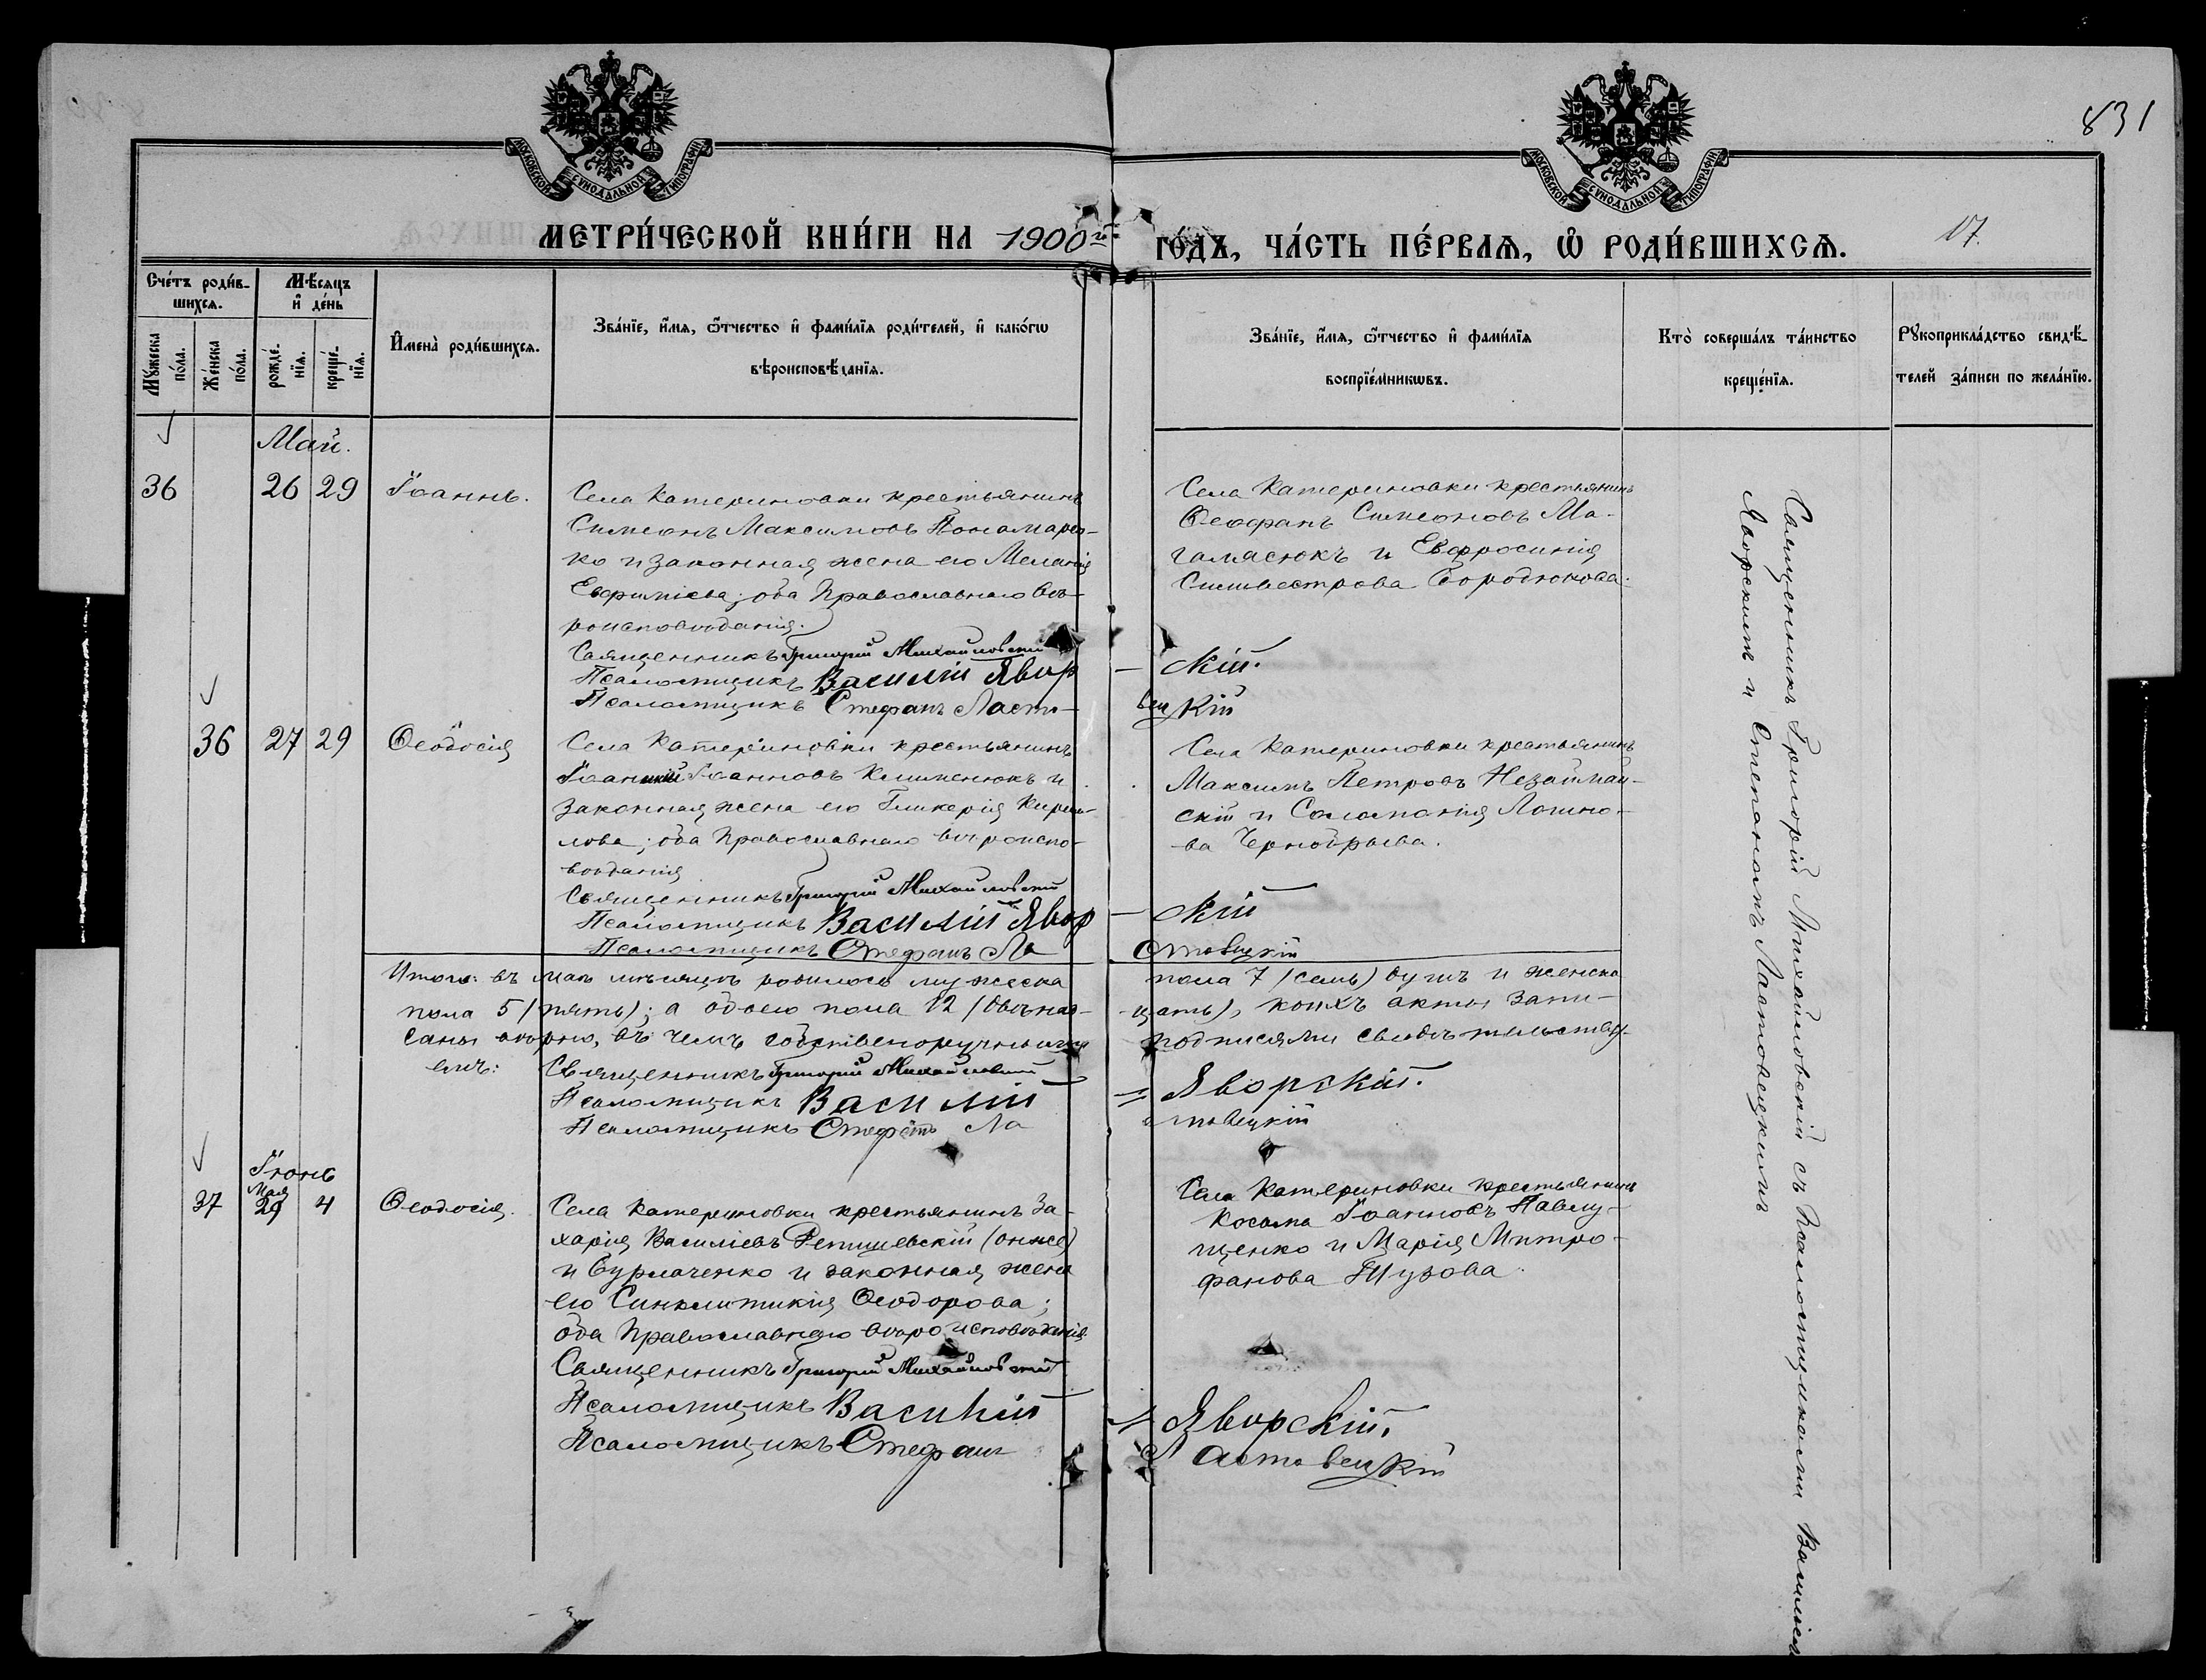 831
МОСКОВСКОЙ СѴНОДАЛЬНОЙ ТИПОГРАФІИ
МОСКОВСКОЙ СѴНОДАЛЬНОЙ ТИПОГРАФІИ
МЕТРИ́ЧЕСКОЙ КНИ́ГИ НА 1900го ГО́ДЪ, ЧА́СТЬ ПЕ́РВАѦ, Ѡ҆ РОДИ́ВШИХСѦ.
17.
Сче́тъ роди́в-
шихсѧ.
Мꙋ́жеска по́ла.
Же́нска по́ла.
Мѣ́сѧцъ
и҆ де́нь
рожде́-
нїѧ.
креще́-
нїѧ.
И҆мена̀ роди́вшихсѧ.
Зва́нїе, и҆́мѧ, ѻ҆́тчество и҆ фами́лїѧ роди́телей, и҆ како́гѡ
вѣроисповѣ́данїѧ.
Зва́нїе, и҆́мѧ, ѻ҆́тчество и҆ фами́лїѧ
воспрїе́мникѡвъ.
Кто̀ соверша́лъ та́инство
креще́нїѧ.
Рꙋкоприкла́дство свидѣ́-
телей за́писи по жела́нїю.
Май.
36 26 29 Іоаннъ.
Села Катериновки крестьянинъ
Симеонъ Максимовъ Понамарен-
ко и законная жена его Меланія
Евфиміева; оба Православнаго вѣ-
роисповѣданія.
Священникъ Григорій Михайловскій
Псаломщикъ Василій Явор-
Псаломщикъ Стефанъ Ласто-
Села Катериновки крестьянинъ
Ѳеофанъ Симеоновъ Ма-
гамасюкъ и Евфросинія
Сильвестрова Бородюкова.
скій.
вецкій
36 27 29 Ѳеодосія
Села Катериновки крестьянинъ
Іоанникій Іоанновъ Клименюкъ и
законная жена его Гликерія Кирил-
лова; оба Православнаго вѣроиспо-
вѣданія
Священникъ Григорій Михайловскій
Псаломщикъ Василій Явор
Псаломщикъ Стефанъ Ла
Села Катериновки крестьянинъ
Максимъ Петровъ Незаймай-
скій и Саломонія Логино-
ва Чернобрыва.
скій
стовецкій
Итого: въ маѣ мѣсяцѣ родилось мужеска пола 7 (семь) душъ и женска
пола 5 (пять); а обоего пола 12 (двѣнад- цать), коихъ акты запи-
саны вѣрно, въ чемъ собственноручными подписями свидѣтельству-
емъ:
Священникъ Григорій Михайловскій
Псаломщикъ Василій Яворскій.
Псаломщикъ Стефанъ Ластовецкій
Іюнь
Мая
37 29 4 Ѳеодосія.
Села Катериновки крестьянинъ За-
харія Василіевъ Репишевскій (онже)
и Бурлаченко и законная жена
его Синклитикія Ѳеодорова;
оба Православнаго вѣроисповѣданія
Священникъ Григорій Михайловскій
Псаломщикъ Василій
Псаломщикъ Стефанъ
Села Катериновки крестьянинъ
Косьма Іоанновъ Павлу-
щенко и Марія Митро-
фанова
Яворскій.
Ластовецкій
Священникъ Григорій Михайловскій съ Псаломщиками Василіемъ
Яворскимъ и Степаномъ Ластовецкимъ